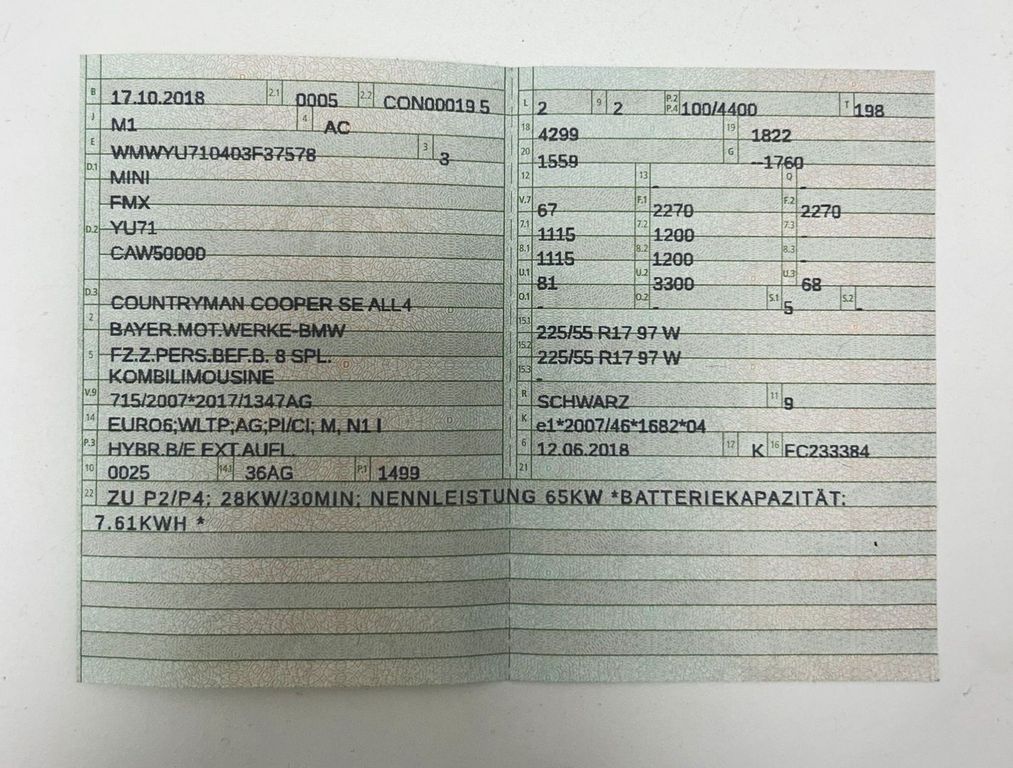 B 17.10.2018 2.1 0005 2.2 CON00019 5
J M1 4 AC
E WMWYU710403F37578 3 3
D.1 MINI
FMX
D.2 YU71
CAW50000
D.3 COUNTRYMAN COOPER SE ALL4
2 BAYER.MOT.WERKE-BMW
5 FZ.Z.PERS.BEF.B. 8 SPL.
KOMBILIMOUSINE
V.9 715/2007*2017/1347AG
14 EURO6;WLTP;AG;PI/CI; M, N1 I
P.3 HYBR.B/E EXT.AUFL.
10 0025 14.1 36AG P.1 1499
L 2 9 2 P.2 P.4 100/4400 T 198
18 4299 19 1822
20 1559 G --1760
12 - 13 - Q -
V.7 67 F.1 2270 F.2 2270
7.1 1115 7.2 1200 7.3 -
8.1 1115 8.2 1200 8.3 -
U.1 81 U.2 3300 U.3 68
O.1 - O.2 - S.1 5 S.2 -
15.1 225/55 R17 97 W
15.2 225/55 R17 97 W
15.3 -
R SCHWARZ 11 9
K e1*2007/46*1682*04
6 12.06.2018 17 K 16 FC233384
21
22 ZU P2/P4: 28KW/30MIN; NENNLEISTUNG 65KW *BATTERIEKAPAZITÄT:
7.61KWH *